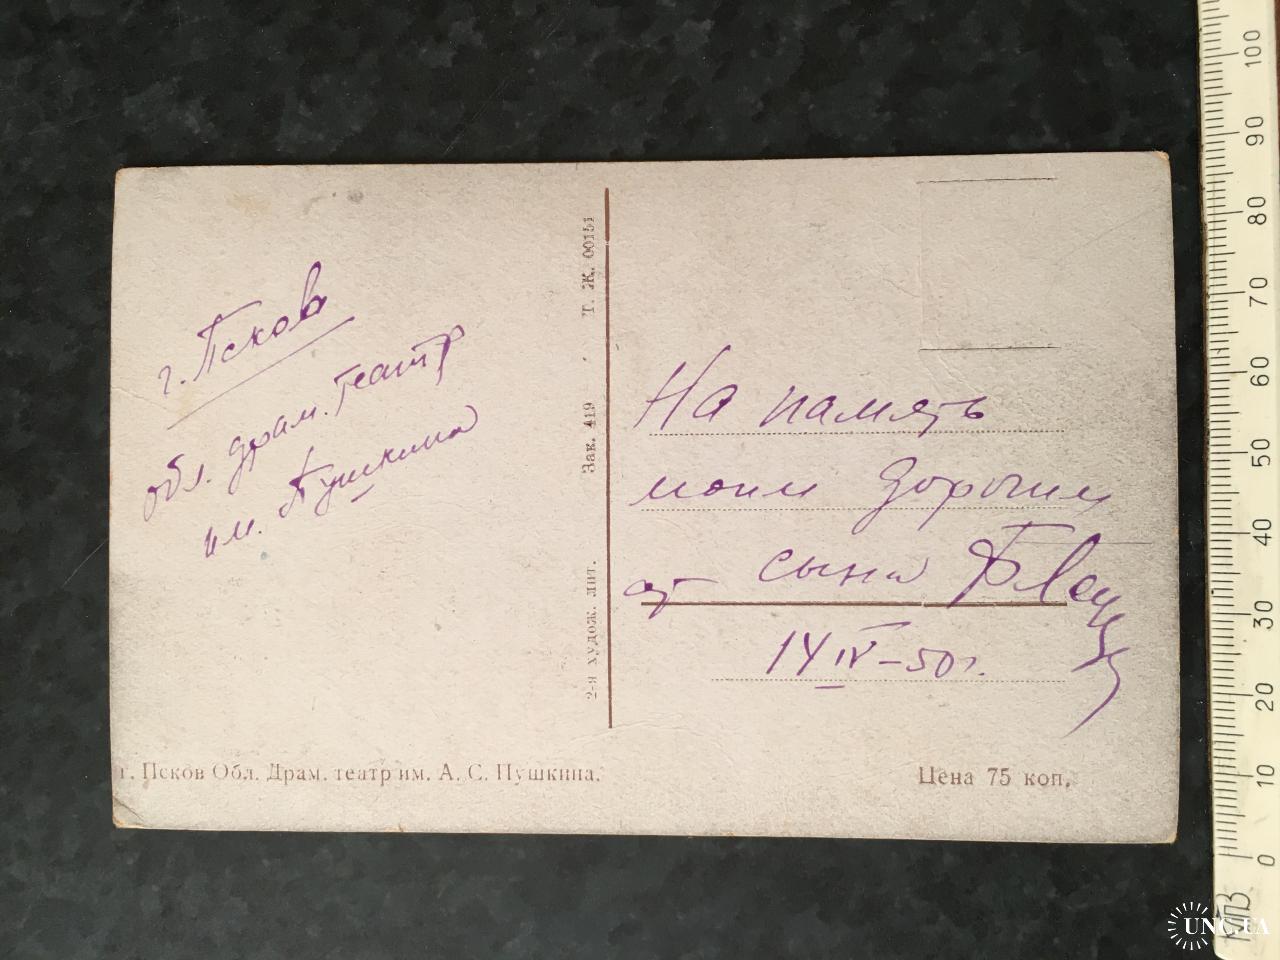 г. Псков
обл. драм. театр
им. Пушкина
Т. Ж. 00151
Зак. 419
2-я худож. лит.
На память
моим дорогим
от сына
14 IV-50г.
г. Псков Обл. Драм. театр им. А. С. Пушкина.
Цена 75 коп.
100
90
80
70
60
50
40
30
20
10
0
UNC.UA